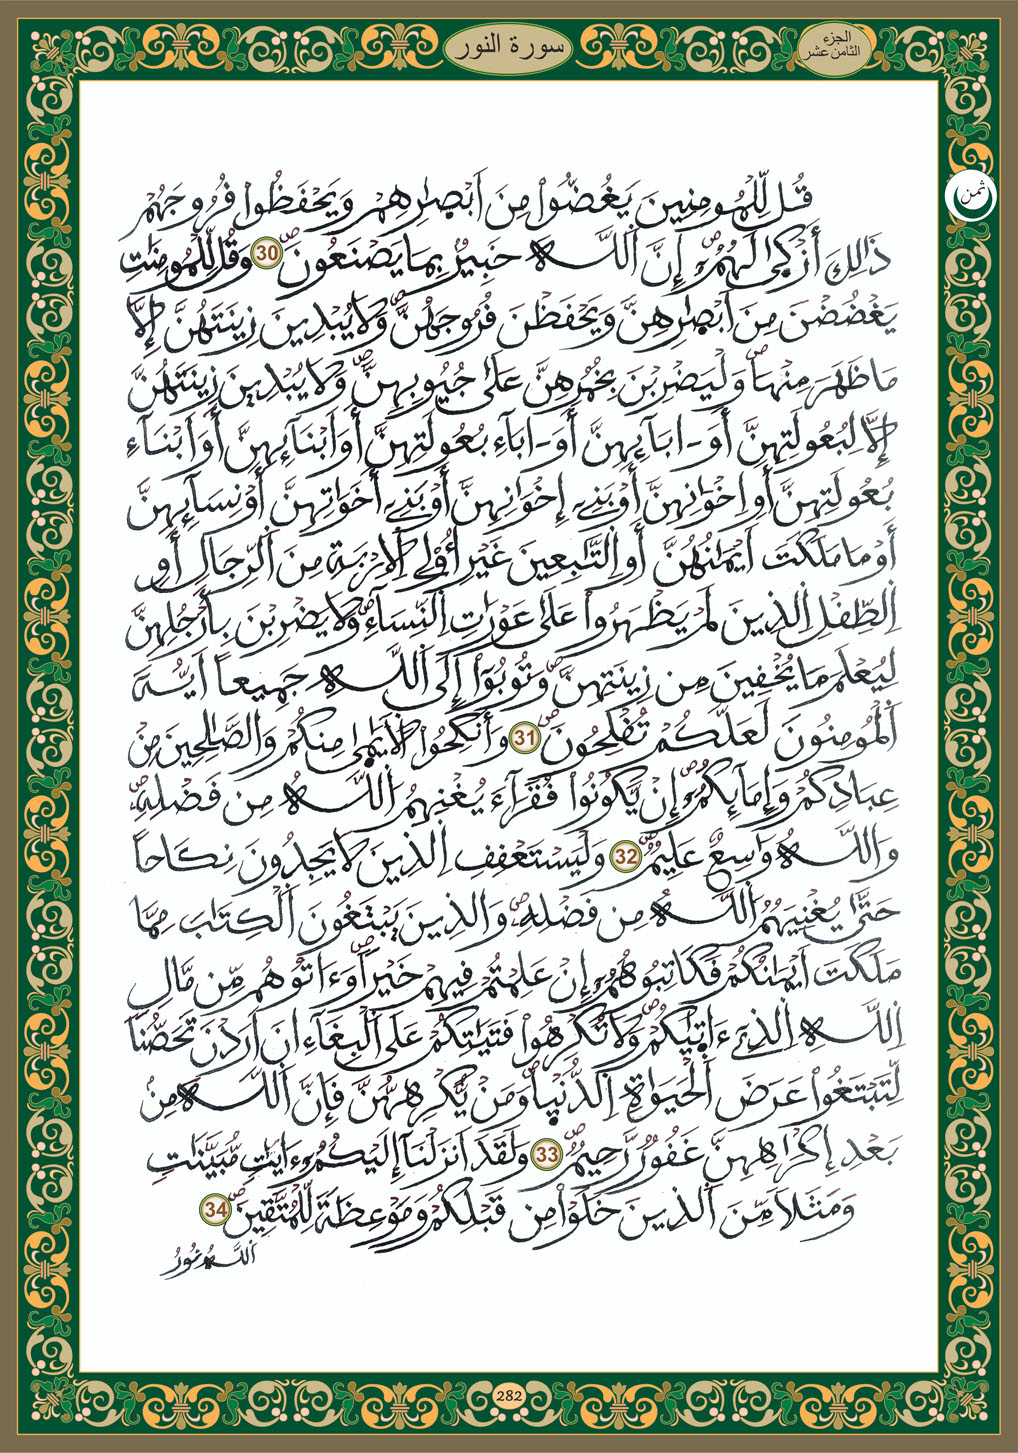 سورة النور
الجزء
الثامن عشر
ثمن
قُل لِّلْمُومِنِينَ يَغُضُّواْ مِنَ اَبْصٰرِهِمْ وَيَحْفَظُواْ فُرُوجَهُمْ
ذَٰلِكَ أَزْكَىٰ لَهُمُۥٓ إِنَّ اَللَّهَ خَبِيرُۢ بِمَا يَصْنَعُونَ 30 وَقُل لِّلْمُومِنَٰتِ
يَغْضُضْنَ مِنَ اَبْصٰرِهِنَّ وَيَحْفَظْنَ فُرُوجَهُنَّ وَلَا يُبْدِينَ زِينَتَهُنَّ إِلَّا
مَا ظَهَرَ مِنْهَا وَلْيَضْرِبْنَ بِخُمُرِهِنَّ عَلَىٰ جُيُوبِهِنَّ وَلَا يُبْدِينَ زِينَتَهُنَّ
إِلَّا لِبُعُولَتِهِنَّ أَوَ ـ ابَآئِهِنَّ أَوَ ـ ابَآءِ بُعُولَتِهِنَّ أَوَ اَبْنَآئِهِنَّ أَوَ اَبْنَآءِ
بُعُولَتِهِنَّ أَوِ اِخْوَٰنِهِنَّ أَوْ بَنِےٓ إِخْوَٰنِهِنَّ أَوْ بَنِےٓ أَخَوَٰتِهِنَّ أَوْ نِسَآئِهِنَّ
أَوْ مَا مَلَكَتَ اَيْمَٰنُهُنَّ أَوِ اِلتَّٰبِعِينَ غَيْرِ أُوْلِي اِلِارْبَةِ مِنَ اَلرِّجَالِ أَوِ
اِلطِّفْلِ اِلذِينَ لَمْ يَظْهَرُواْ عَلَىٰ عَوْرَٰتِ اِلنِّسَآءِ وَلَا يَضْرِبْنَ بِأَرْجُلِهِنَّ
لِيُعْلَمَ مَا يُخْفِينَ مِن زِينَتِهِنَّ وَتُوبُوٓاْ إِلَى اَللَّهِ جَمِيعاً اَيُّهَ
اَلْمُومِنُونَ لَعَلَّكُمْ تُفْلِحُونَ 31 وَأَنكِحُواْ اُلَايَٰمَىٰ مِنكُمْ وَالصَّٰلِحِينَ مِنْ
عِبَادِكُمْ وَإِمَآئِكُمُۥٓ إِنْ يَّكُونُواْ فُقَرَآءَ يُغْنِهِمُ اُللَّهُ مِن فَضْلِهِۦ
وَاللَّهُ وَٰسِعٌ عَلِيمٌ 32 وَلْيَسْتَعْفِفِ اِلذِينَ لَا يَجِدُونَ نِكَاحاً
حَتَّىٰ يُغْنِيَهُمُ اُللَّهُ مِن فَضْلِهِۦ وَالذِينَ يَبْتَغُونَ اَلْكِتَٰبَ مِمَّا
مَلَكَتَ اَيْمَٰنُكُمْ فَكَاتِبُوهُمُۥٓ إِنْ عَلِمْتُمْ فِيهِمْ خَيْراً وَءَاتُوهُم مِّن مَّالِ
اِللَّهِ اِلذِےٓ ءَاتَيٰكُمْ وَلَا تُكْرِهُواْ فَتَيَٰتِكُمْ عَلَى اَلْبِغَآءِ انَ اَرَدْنَ تَحَصُّناً
لِّتَبْتَغُواْ عَرَضَ اَلْحَيَوٰةِ اِلدُّنْيَا وَمَنْ يُّكْرِههُّنَّ فَإِنَّ اَللَّهَ مِنۢ
بَعْدِ إِكْرَٰهِهِنَّ غَفُورٌ رَّحِيمٌ 33 وَلَقَدَ اَنزَلْنَآ إِلَيْكُمُۥٓ ءَايَٰتٍ مُّبَيَّنَٰتٍ
وَمَثَلاً مِّنَ اَلذِينَ خَلَوْاْ مِن قَبْلِكُمْ وَمَوْعِظَةً لِّلْمُتَّقِينَ 34
اَللَّهُ نُورُ
282